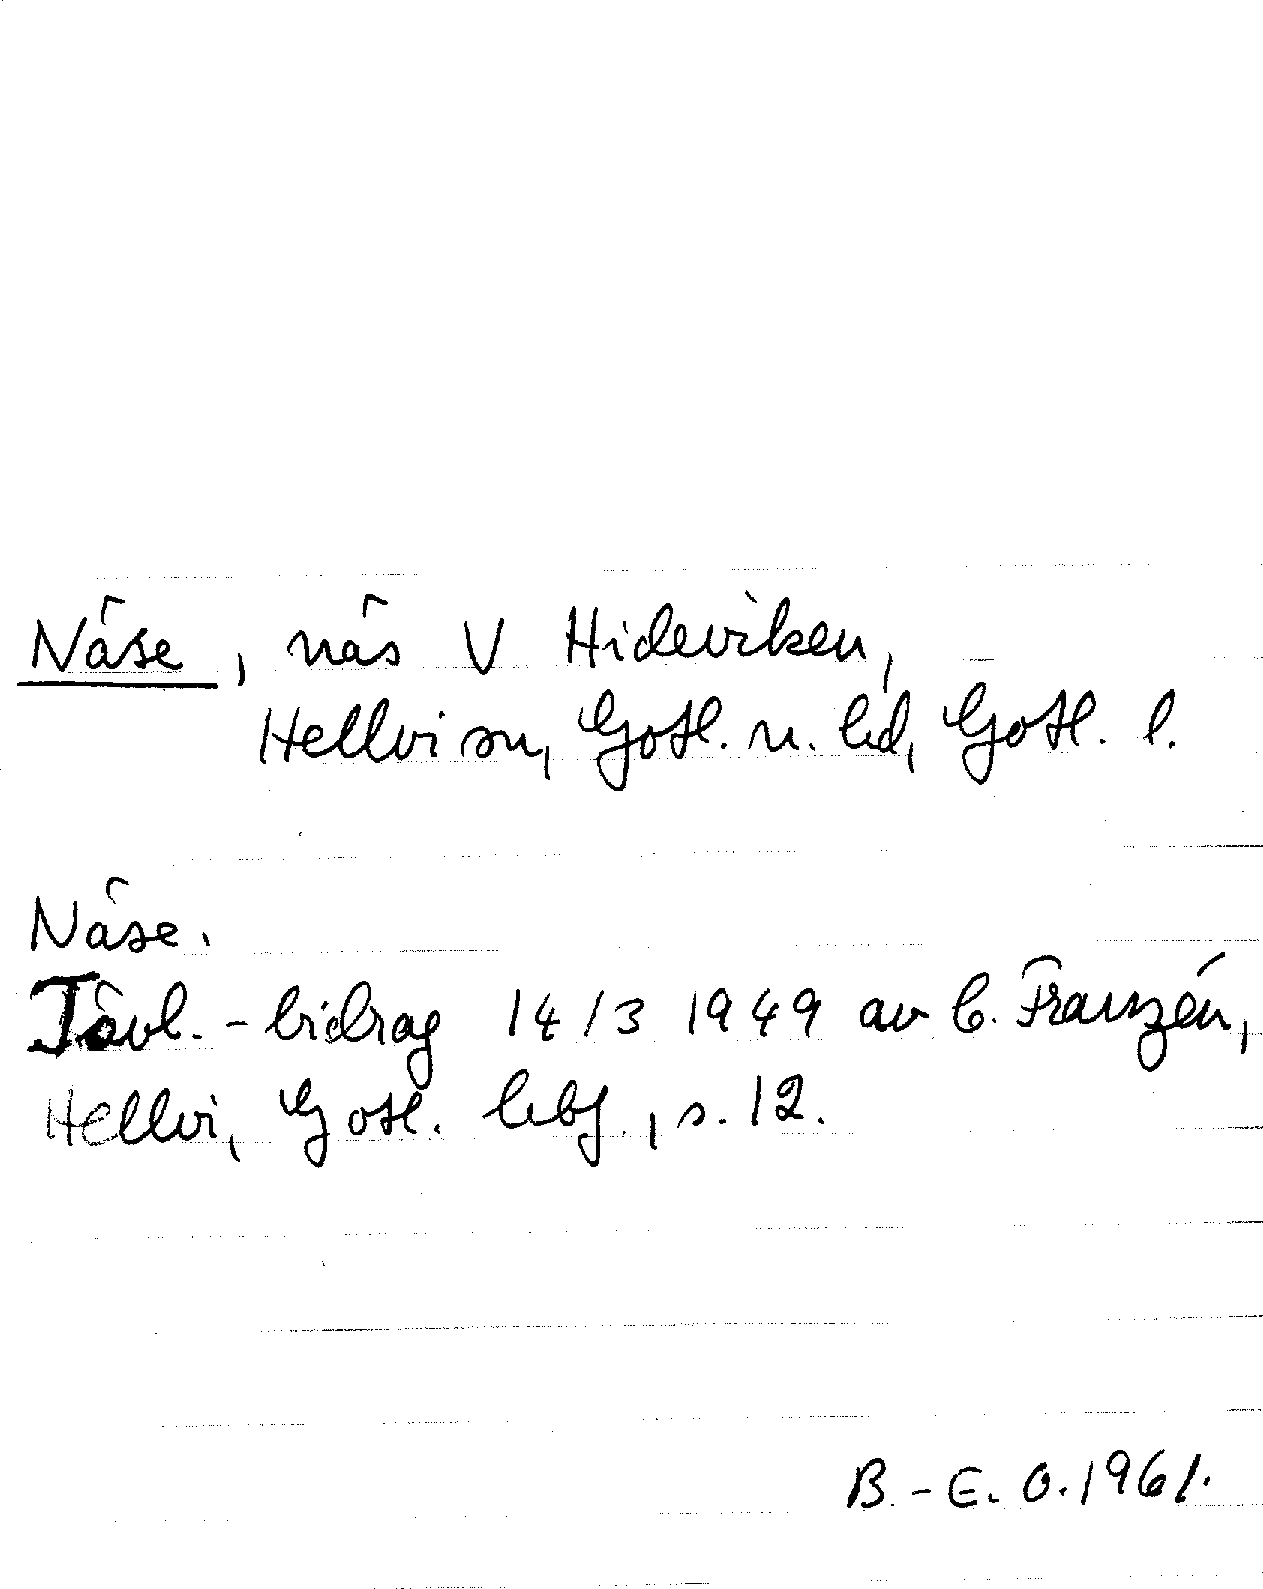 Näse, näs V Hideviken,
Hellvi sn, Gotl. n. hd, Gotl. l.
Näse.
Tävl.-bidrag 14/3 1949 av C. Franzén,
Hellvi, Gotl. hbf., s. 12.
B.-E. O. 1961.